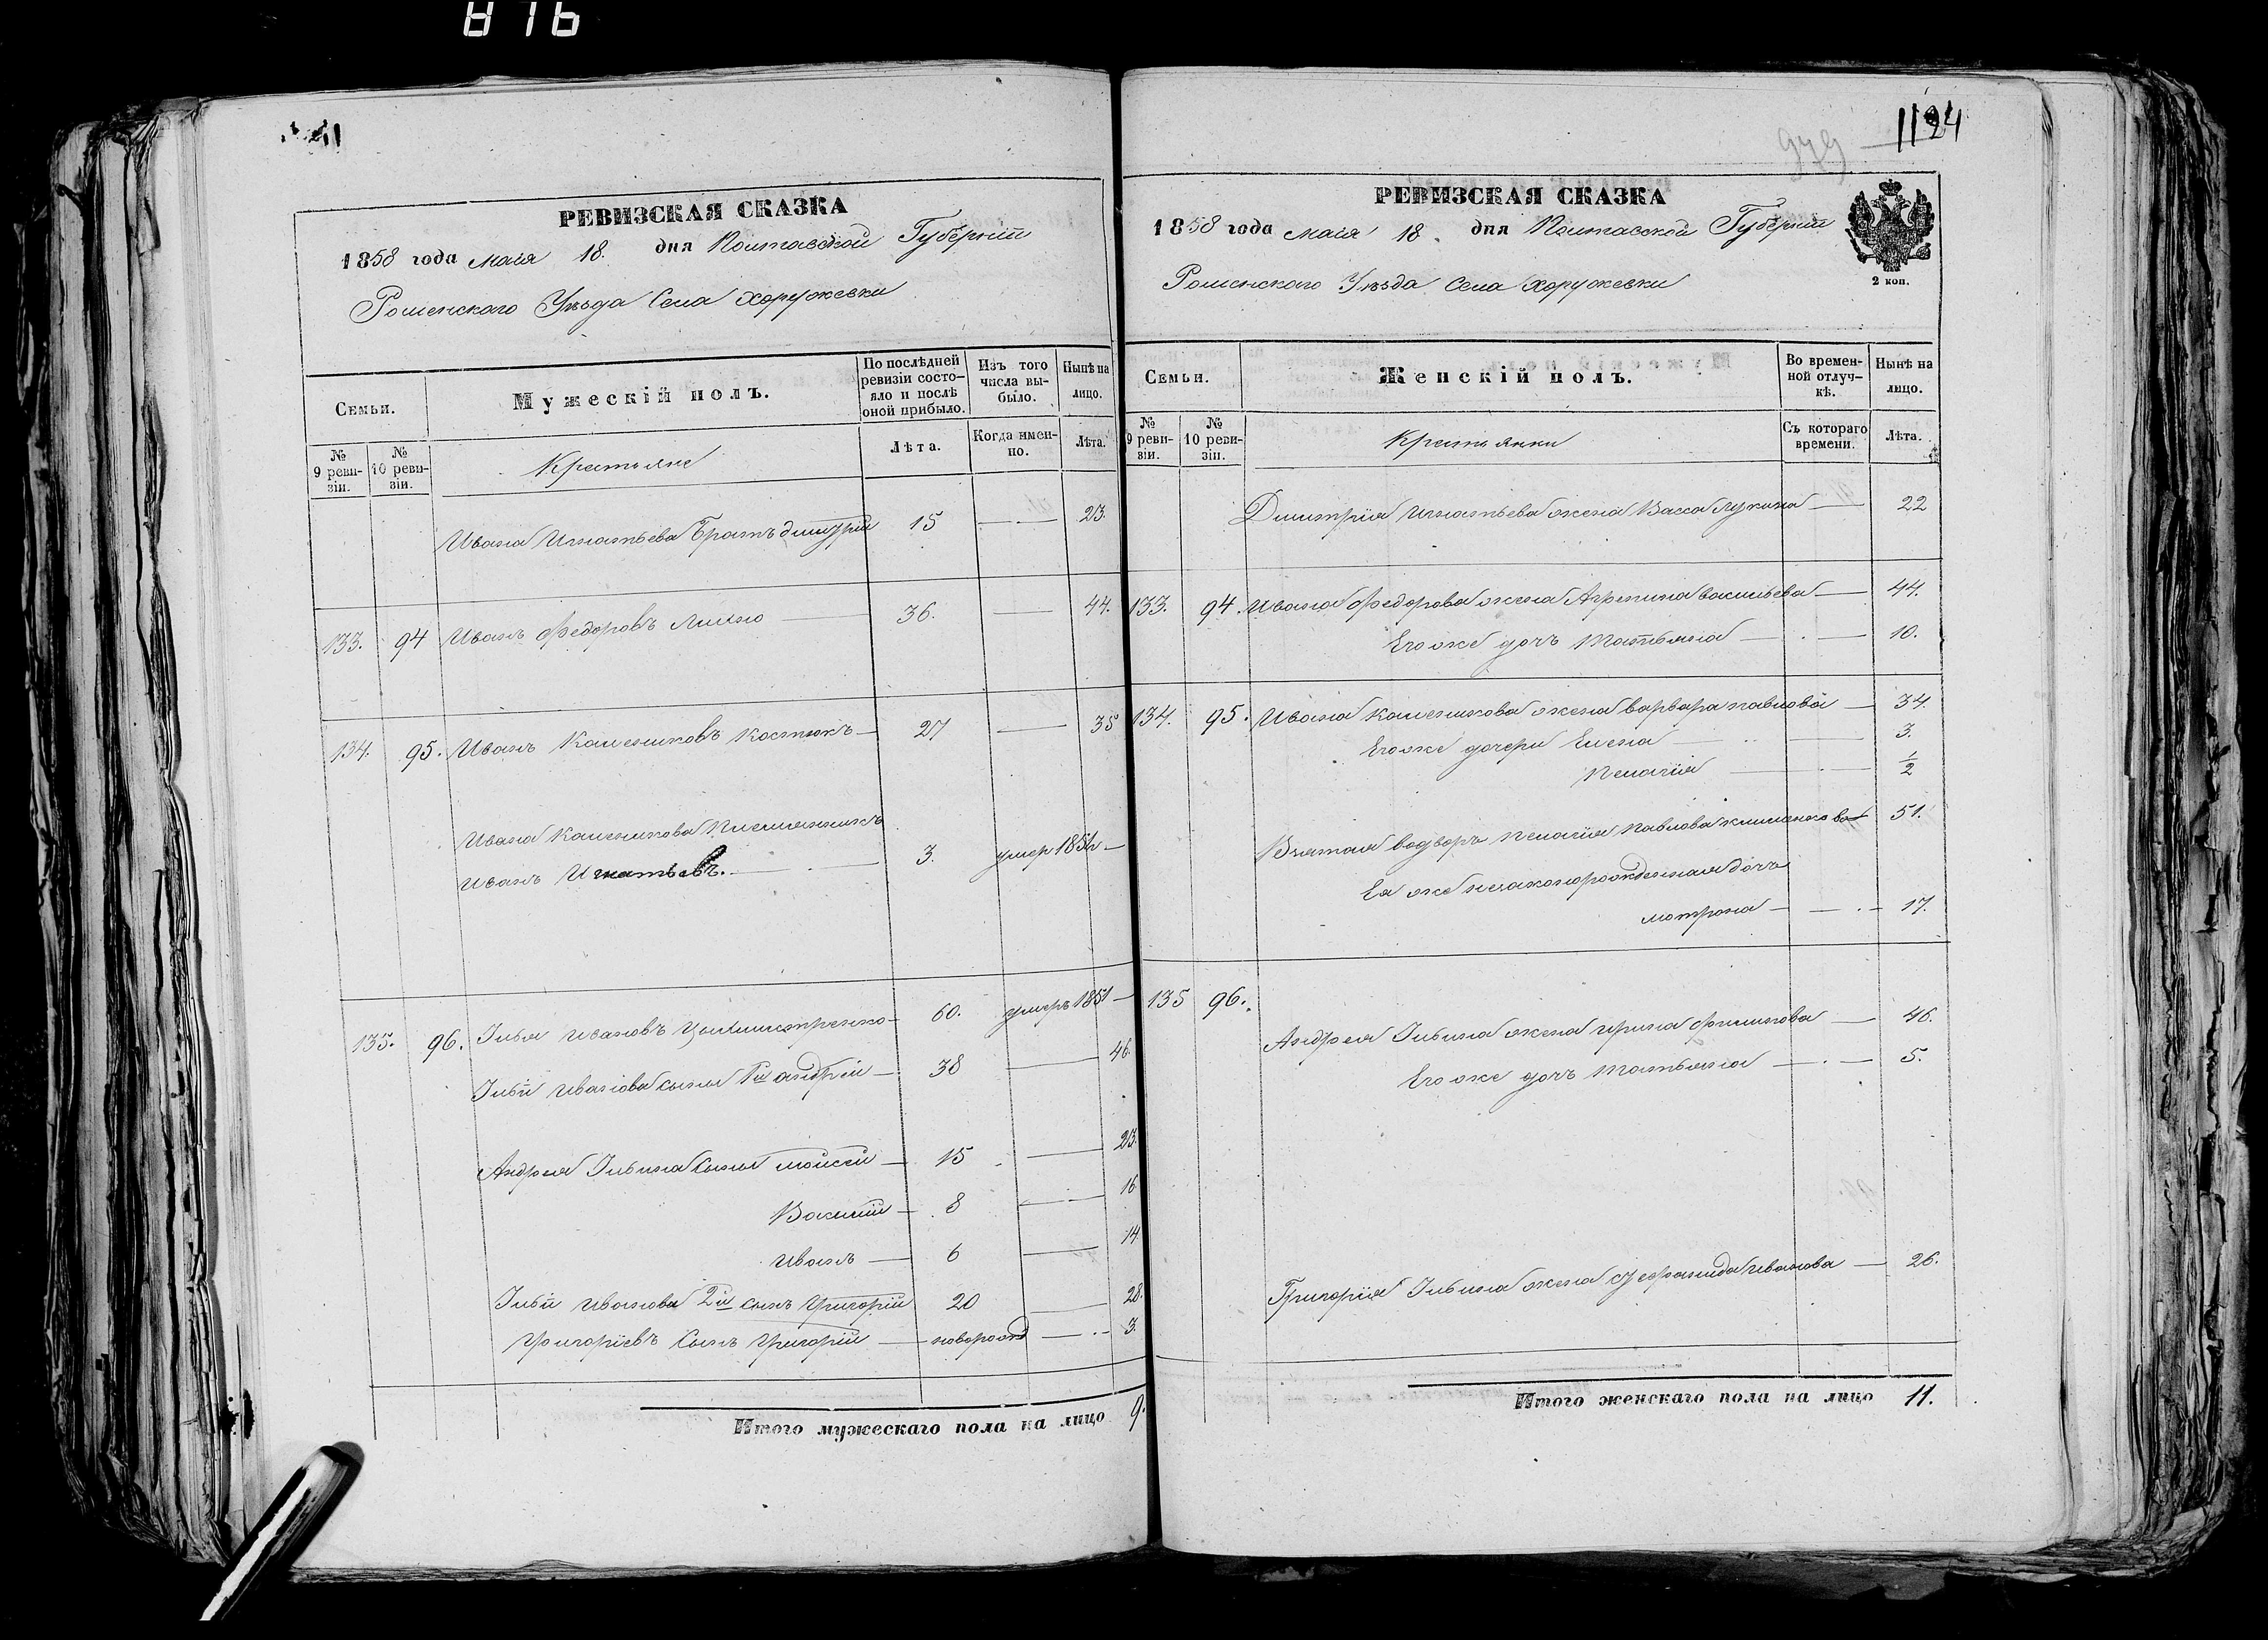 816
РЕВИЗСКАЯ СКАЗКА
1858 года мaiя 18. дня Полтавской Губернiи
Роменскаго Уѣзда Села Хоружевки
Семьи.
Мужескiй полъ.
По послѣдней ревизiи состояло и послѣ оной прибыло.
Изъ того числа выбыло.
Нынѣ на лицо.
№ 9 ревизiи.
№ 10 ревизiи.
Крестьяне
Лѣта.
Когда именно.
Лѣта.
Ивана Игнатьева Братъ дмитрiй 15 23.
133. 94 Иванъ Федоровъ 36. 44.
134. 95. Иванъ Калениковъ Костюкъ 27 35
Ивана Каленикова Племянникъ
Иванъ Игнатьевъ. 3. умер 1851
135. 96. Илья Ивановъ 60. умеръ 1851
Ильи Иванова сыны 1й андрiй 38 46.
Андрея Ильина сыны мойсей 15 23.
Василiй 8 16
Иванъ 6 14
Ильи Иванова 2й сынъ Григорiй 20 28.
Григорiевъ Сынъ Григорiй новорожд 3.
Итого мужескаго пола на лицо 9.
979
1124
РЕВИЗСКАЯ СКАЗКА
1858 года маiя 18. дня Полтавской Губернiи
2 коп.
Роменскаго Уѣзда Села Хоружевки
Семьи.
Женскiй полъ.
Во временной отлучкѣ.
Нынѣ на лицо.
№ 9 ревизiи.
№ 10 ревизiи.
Крестьянки
Съ котораго времени.
Лѣта.
Димитрiя Игнатьева жена Васса Лукина 22
133. 94. Ивана Федорова жена Агрепина васильева 44.
Его же дочъ Татьяна 10.
134. 95. Ивана Каленикова жена варвара павлова 34.
Его же дочери Елена 3.
Пелагiя 1/2
Взятая водворъ Пелагiя Павлова 51.
Ея же незаконорожденная дочъ
мотрона 17.
135 96.
Андрея Ильина жена Ирина Филипова 46.
Его же дочъ Татьяна 5.
Григорiя Ильина жена Иванова 26.
Итого женскаго пола на лицо 11.